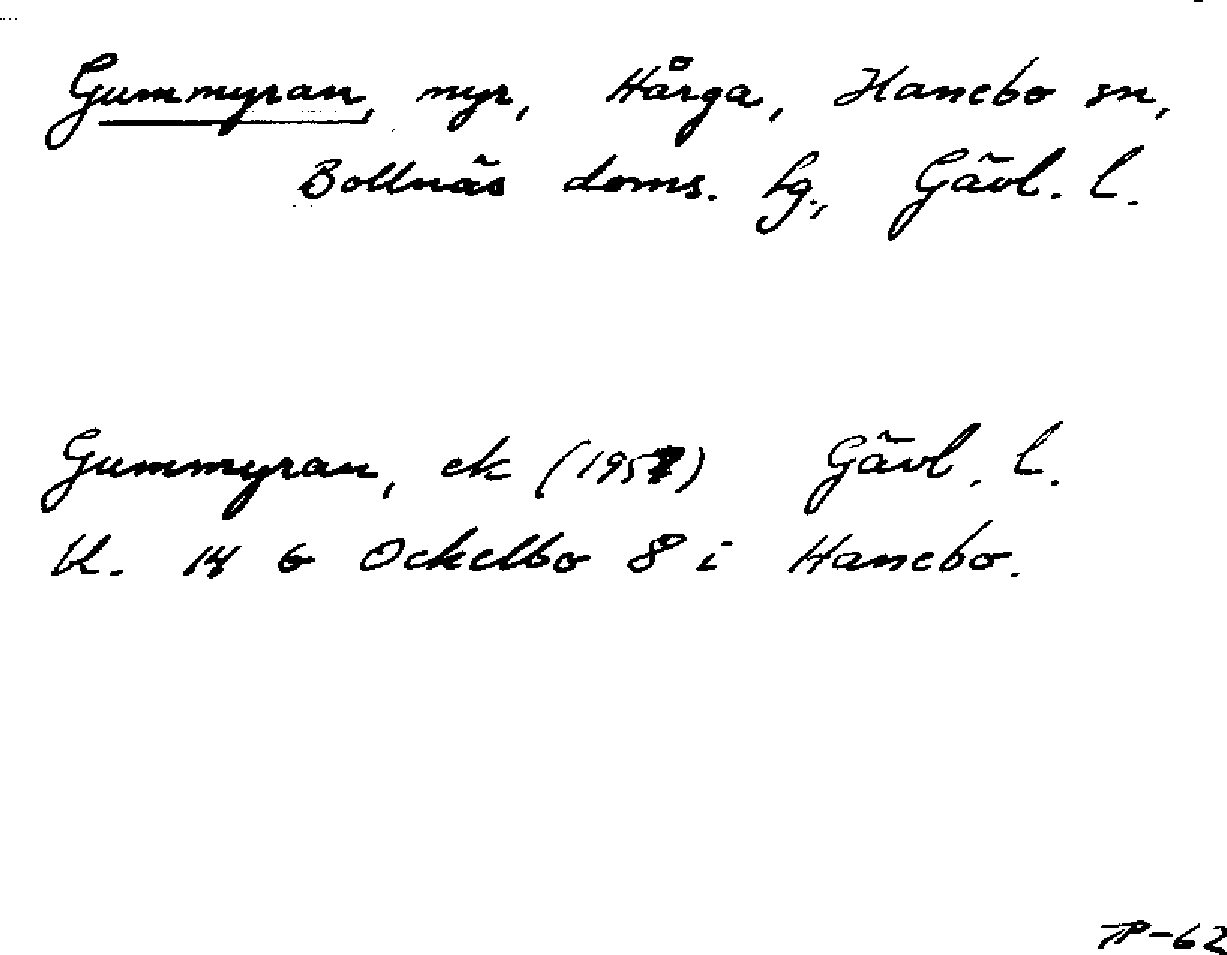 Gummyran, myr, Hårga, Hanebo sn,
Bollnäs doms. lg., Gävl. l.
Gummyran, ek (1957) Gävl. l.
Bl. 14 G Ockelbo 8 i Hanebo.
TP-62